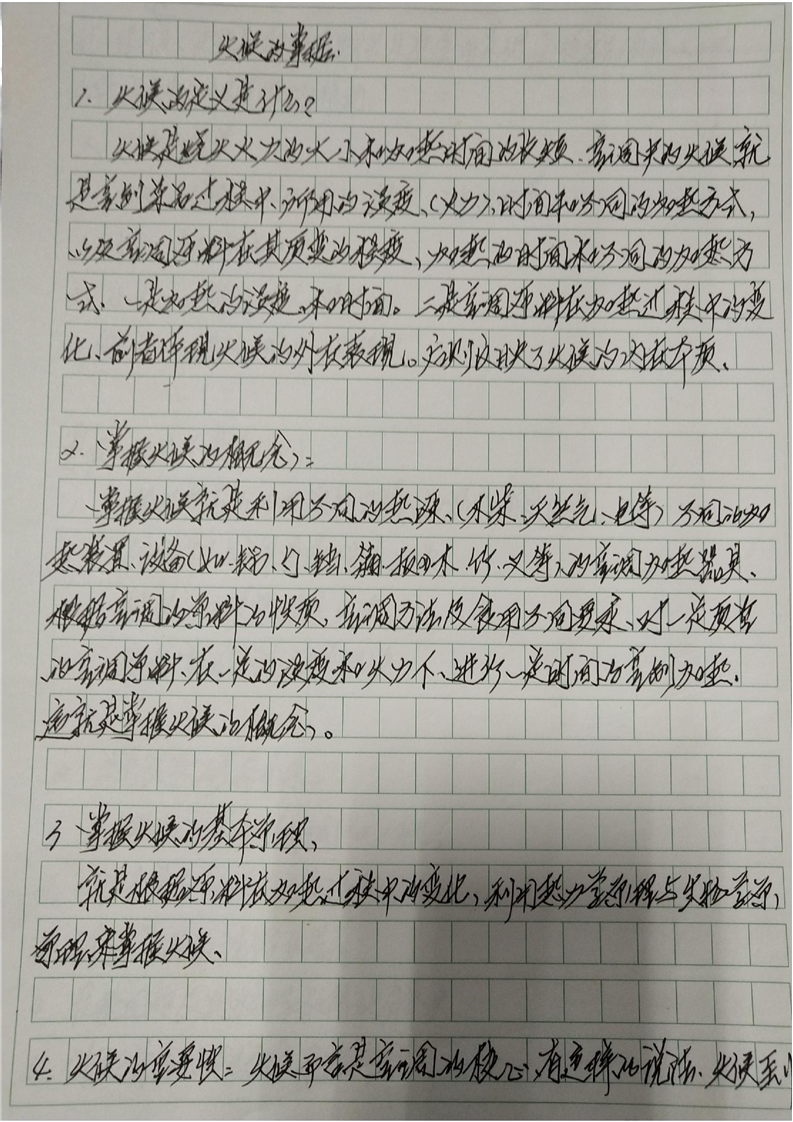 火候的掌握
1. 火候的定义是什么?
火候是烧火火力的大小和加热时间的长短、烹调中的火候就
是烹制菜品过程中、所用的温度、(火力)、时间和不同的加热方式,
以及烹调原料在其质变的程度、加热的时间和不同的加热方
式、一是加热的温度、和时间。二是烹调原料在加热过程中的变
化、前者体现火候的外在表现。后则反映了火候的内在本质、
2. 掌握火候的概念:
掌握火候就是利用不同的热源、(木柴、天然气、电等)不同的加
热装置、设备(如、锅、、铛、、板 木 竹、叉等)的烹调加热器具、
根据烹调的原料的性质、烹调方法及食用不同要求、对一定质量
的烹调原料、在一定的温度和火力下、进行一定时间的烹制加热.
这就是掌握火候的概念。
3 掌握火候的基本原理、
就是根据原料在加热过程中的变化、利用热力学原理与实验
原理来掌握火候、
4. 火候的重要性: 火候而言是烹调的核心、有这样的说法、火候至